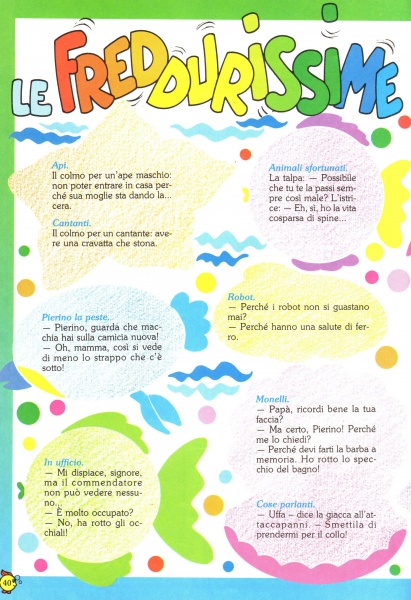 LE FREDDURISSIME
Api.
Il colmo per un'ape maschio:
non poter entrare in casa per-
ché sua moglie sta dando la...
cera.
Cantanti.
Il colmo per un cantante: ave-
re una cravatta che stona.
Animali sfortunati.
La talpa: — Possibile
che tu te la passi sem-
pre così male? L'istri-
ce: — Eh, sì, ho la vita
cosparsa di spine...
Pierino la peste.
— Pierino, guarda che mac-
chia hai sulla camicia nuova!
— Oh, mamma, così si vede
di meno lo strappo che c'è
sotto!
Robot.
— Perché i robot non si guastano
mai?
— Perché hanno una salute di fer-
ro.
In ufficio.
— Mi dispiace, signore,
ma il commendatore
non può vedere nessu-
no...
— È molto occupato?
— No, ha rotto gli oc-
chiali!
Monelli.
— Papà, ricordi bene la tua
faccia?
— Ma certo, Pierino! Perché
me lo chiedi?
— Perché devi farti la barba a
memoria. Ho rotto lo spec-
chio del bagno!
Cose parlanti.
— Uffa – dice la giacca all'at-
taccapanni. – Smettila di
prendermi per il collo!
40